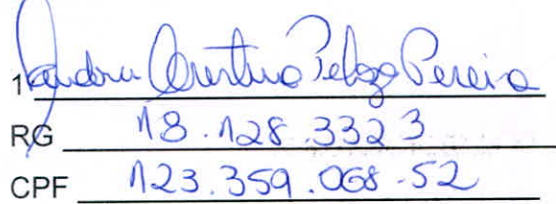 1 Sandra Cristina Pelozo Pereira
RG 18.128.332 3
CPF 123.359.068-52